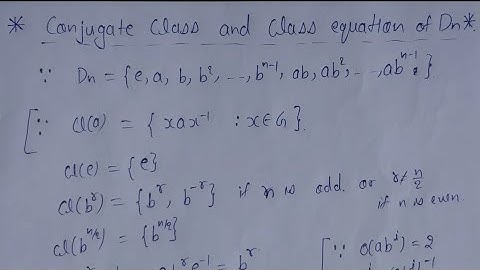 * Conjugate Class and Class equation of Dn *
∵ Dn = {e, a, b, b², --, bⁿ⁻¹, ab, ab², - -, abⁿ⁻¹}
[∵ cl(a) = {xax⁻¹ : x∈G}.
cl(e) = {e}
cl(bʳ) = {bʳ, b⁻ʳ} if n is odd. or r≠n/2
if n is even.
cl(b^{n/2}) = {b^{n/2}} [∵ o(abⁱ) = 2
= bʳ